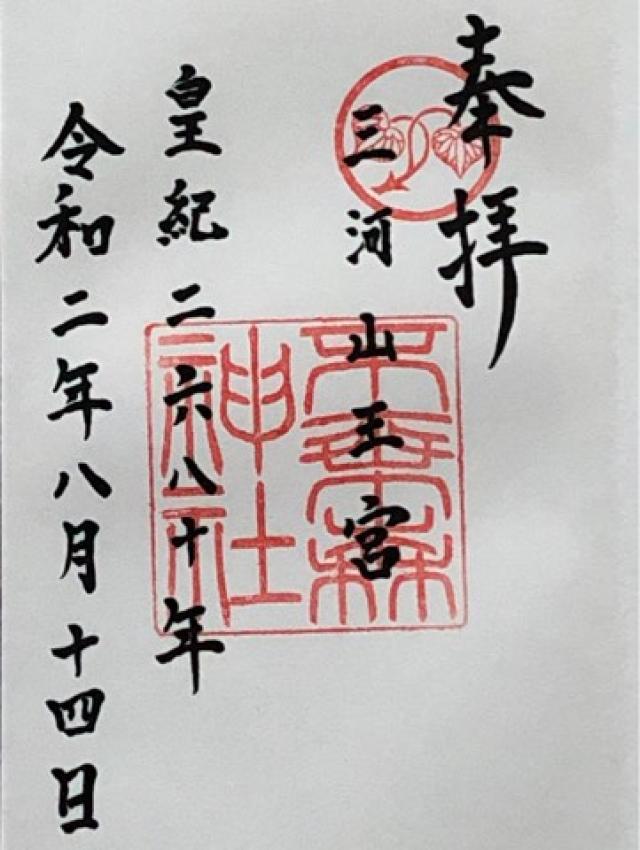 奉拝
三河山王宮
不乗森
神社
皇紀二六八十年
令和二年八月十四日